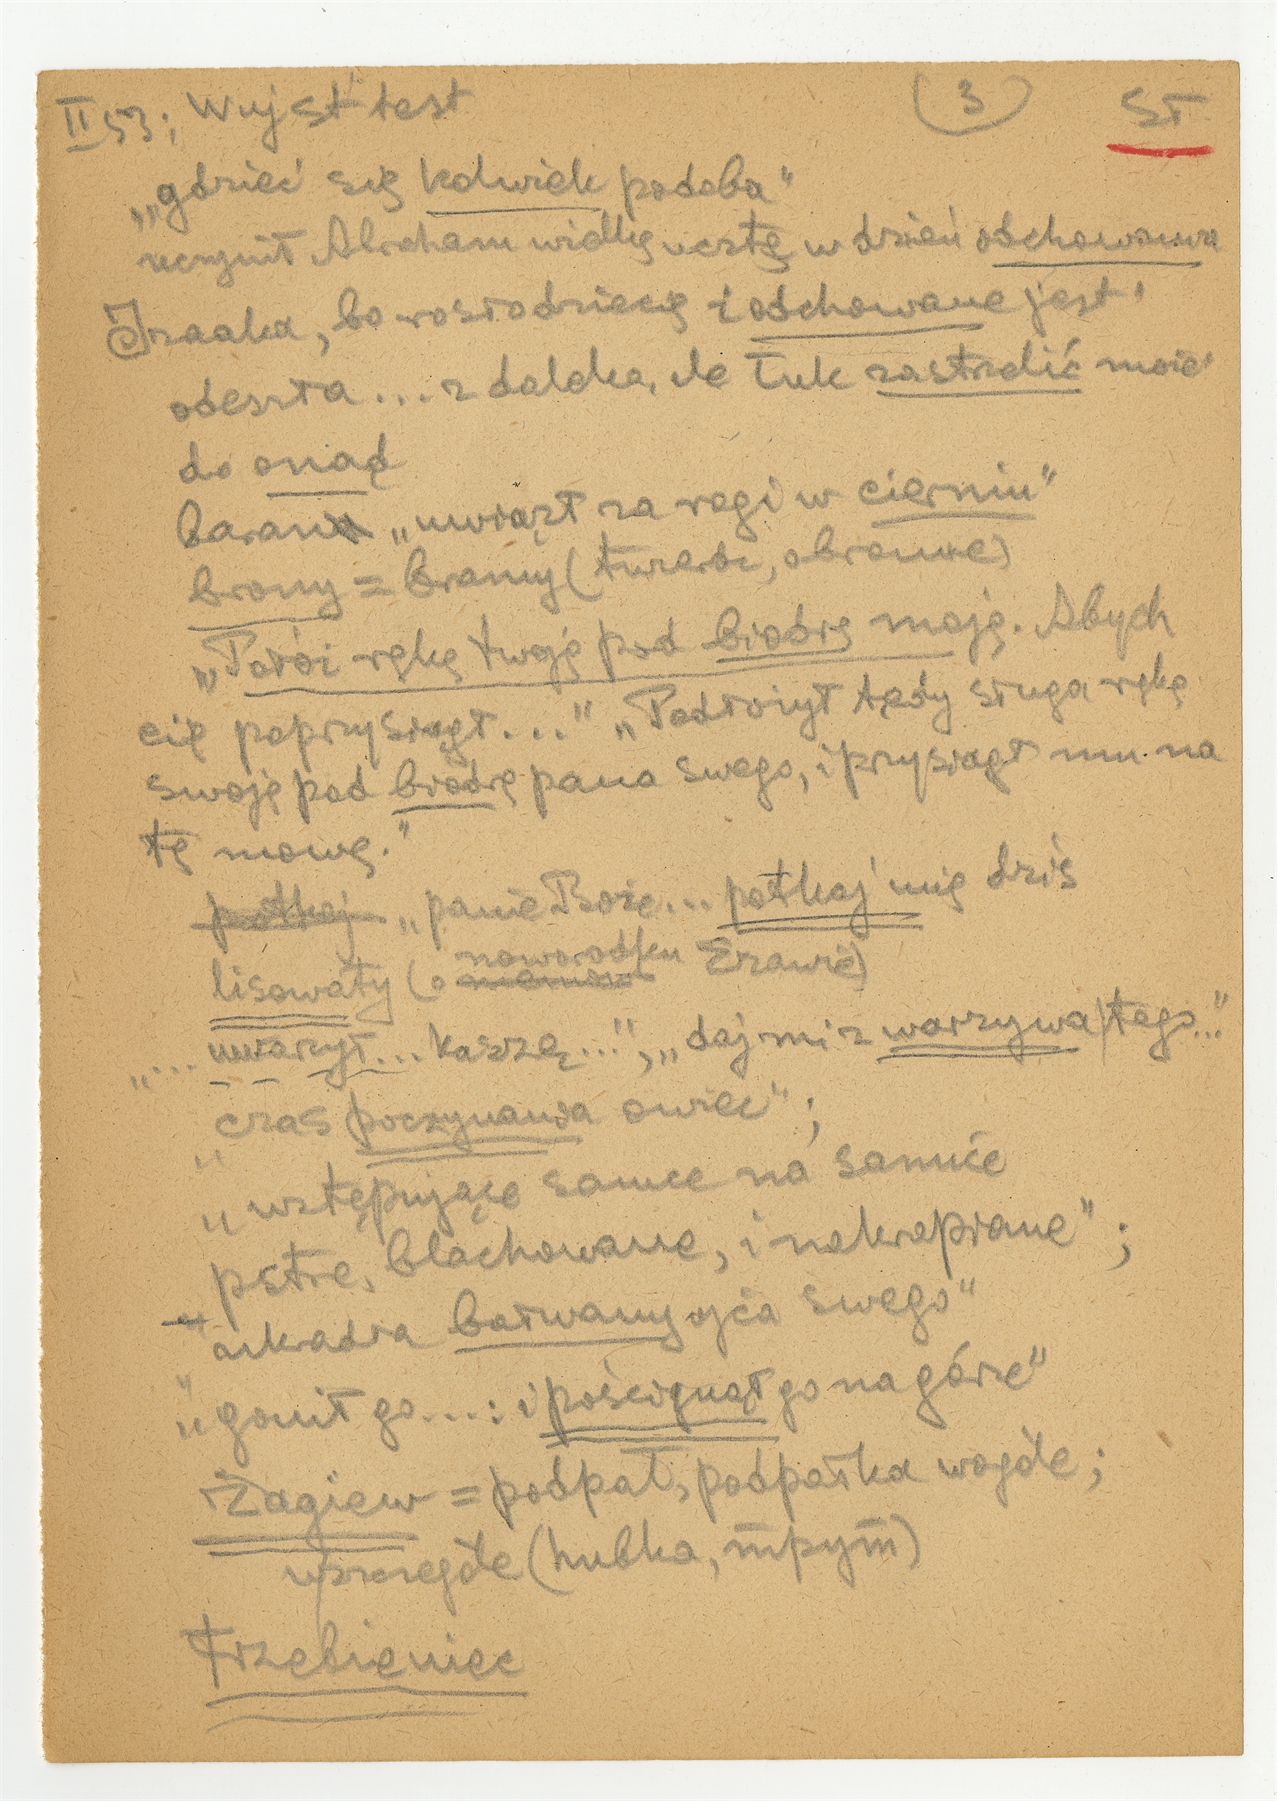 II 53; Wuj St test (3) ST
„gdzieć się kolwiek podoba”
uczynił Abraham wielką ucztę w dzień odchowania
Izaaka, bo rosło dziecię i odchowane jest'
odeszła ... z daleka, ile łuk zastrzelić może'
do onąd
baran „uwiązł za rogi w cierniu”
brony = bramy (twierdz, obronne)
„Połóż rękę twoję pod biodrę moję. Abych
cię poprzysiągł ...” „Podłożył tędy sługa rękę
swoję pod biodrę pana swego, i przysiągł mu na
tę mowę.”
potkaj „panie Boże... potkaj mię dziś
lisowaty (o noworodku Ezawie)
„... uwarzył ... kaszę...”, „daj mi z warzywa tego...”
„czas poczynania owiec”;
„wstępujące samce na samice
pstre, blachowane, i nakrapiane”;
„ukradła bałwany ojca swego”
„gonił go...: i poścignął go na górze”
Żagiew = podpał, podpałka w ogóle;
w szczególe (hubka, трут)
Trzebieniec